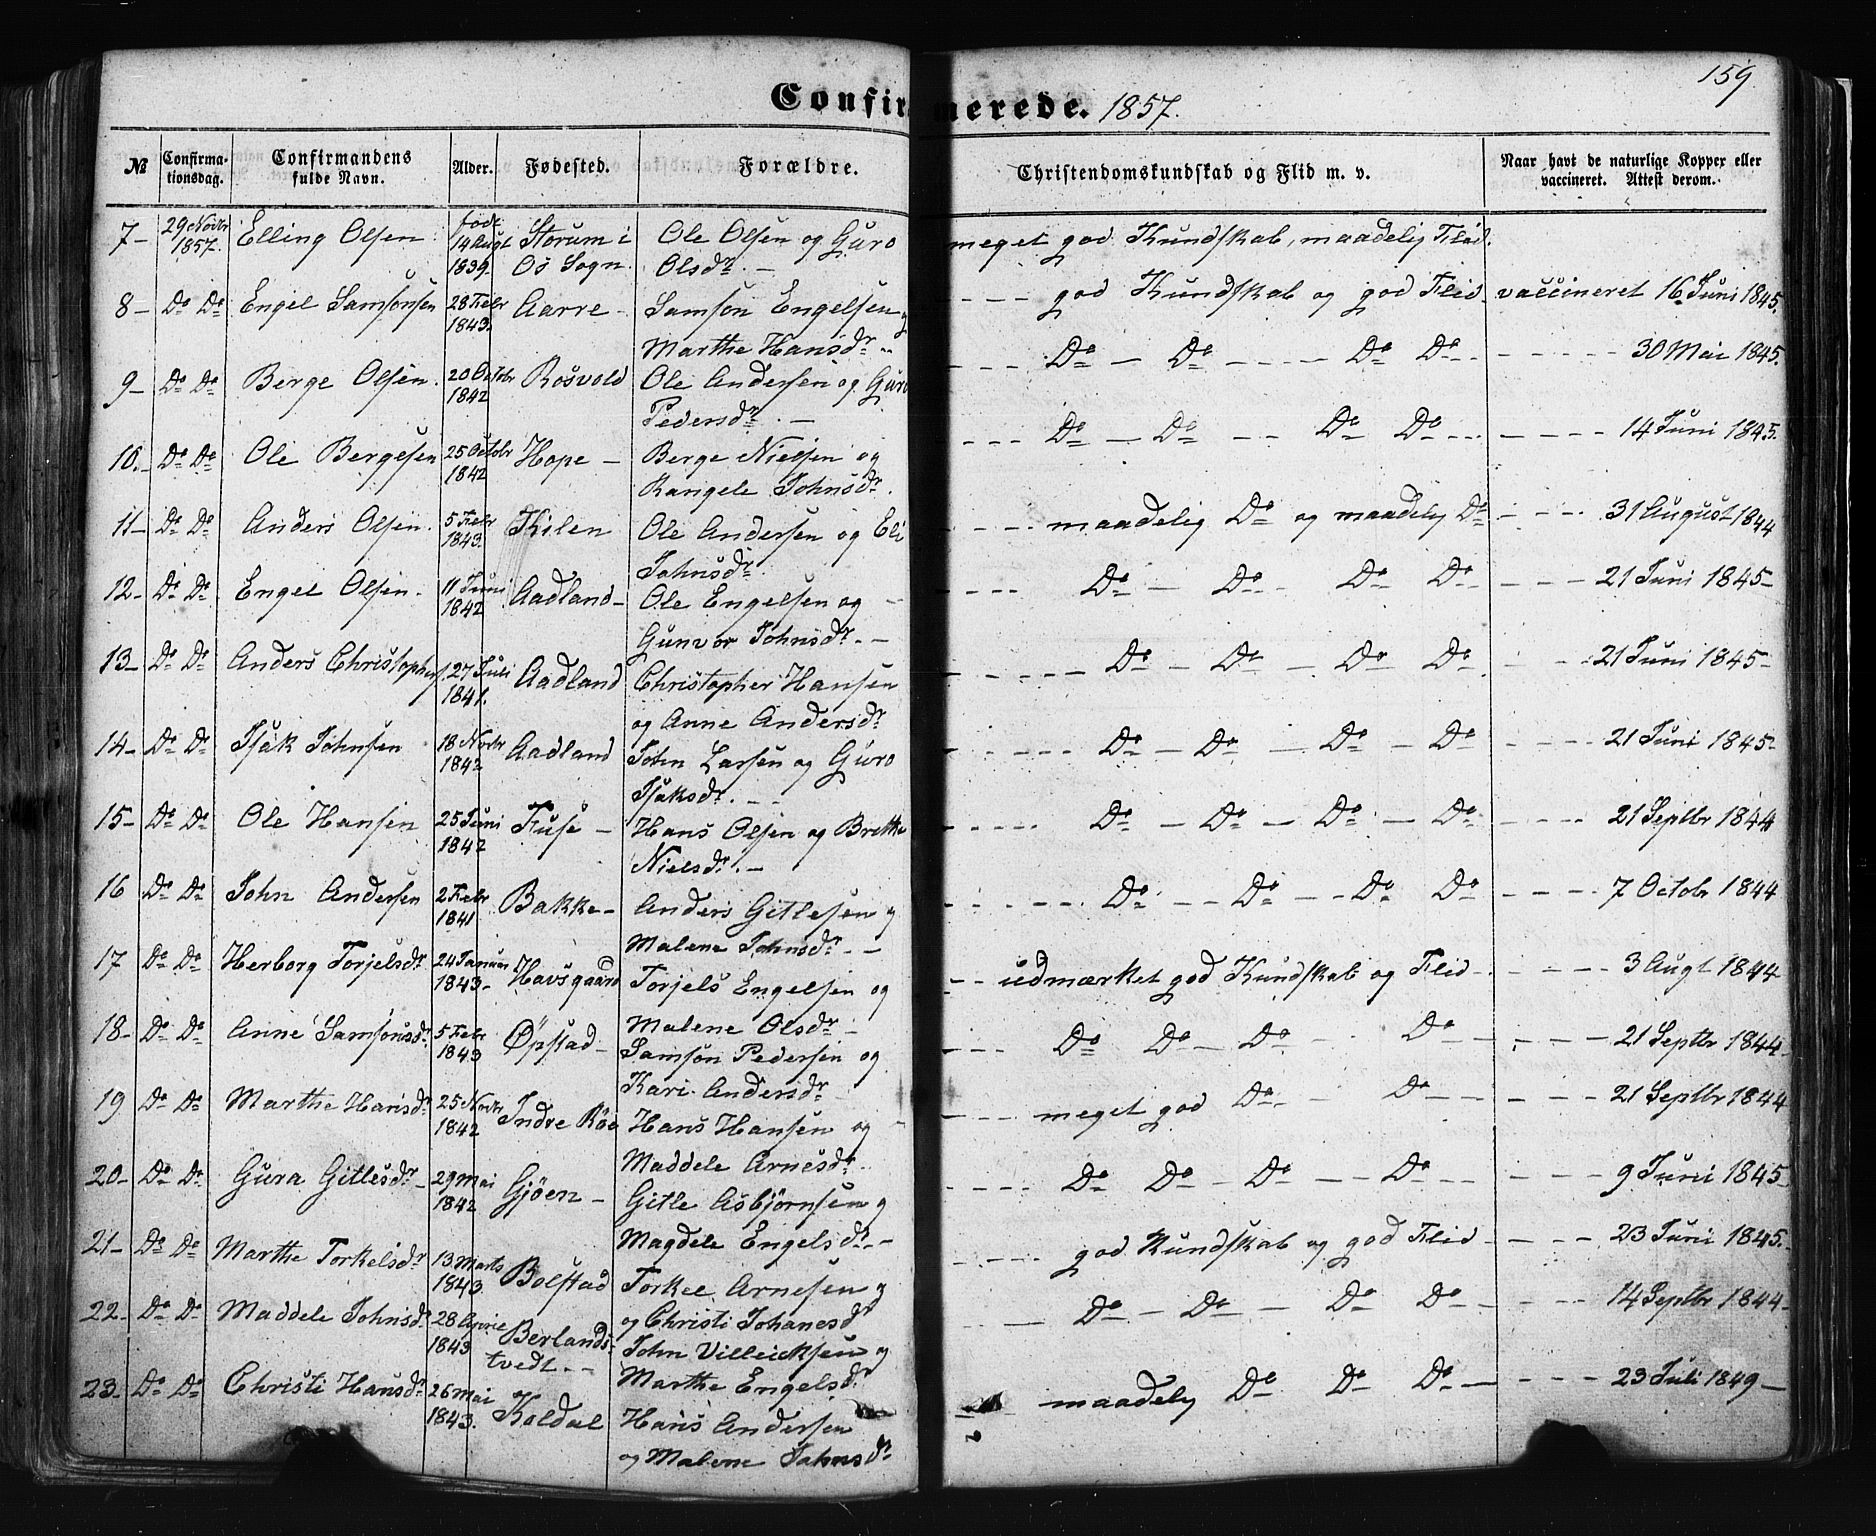 159
Confirmerede. 1857.
№ Confirmationsdag. Confirmandens fulde Navn. Alder. Fødested. Forældre. Christendomskundskab og Flid m. v. Naar havt de naturlige Kopper eller vaccineret. Attest derom.
7 – 29 Novbr 1857. Elling Olsen født 14 Augt 1839. Storum i Os Sogn. Ole Olsen og Guro Olsdr. – meget god Kundskab, maadelig Flid.
8 – Do Do Engel Samsonsen 28 Febr 1843. Aarre – Samson Engelsen og Marthe Hansdr. – – – – god Kundskab og god Flid vaccineret 16 Juni 1845.
9 – Do Do Berge Olsen. 20 Octobr 1842 Rosvold Ole Andersen og Guro Pedersdr. – – – – Do – Do – – – – Do Do – – – – – – 30 Mai 1845.
10. – Do Do Ole Bergesen 25 Octobr 1842 Hope – Berge Nielsen og Rangele Johnsdr. – – – Do – Do – – Do Do – – – – – – 14 Juni 1845.
11 – Do Do Anders Olsen. 5 Febr 1843. Kilen Ole Andersen og Eli Johnsdr. – – – maadelig Do og maadely Do – – – – 31 August 1844
12 – Do Do Engel Olsen. 11 Juni 1842 Aadland – Ole Engelsen og Gunvor Johnsdr. – – – – – Do – Do – Do Do – – – 21 Juni 1845 –
13 – Do Do Anders Christophers. 27 Juli 1841. Aadland Christopher Hansen og Anne Andersdr – – – – – Do – Do – Do – Do – – – 21 Juni 1845 –
14 – Do Do Isak Johnsen 18 Novbr 1842 Aadland John Larsen og Guro Isaksdr. – – – – – – Do – Do – Do – Do – – – – 21 Juni 1845 –
15 – Do Do Ole Hansen 25 Juni 1842 Fuse – Hans Olsen og Brithe Nielsdr. – – – – – Do – Do – Do – Do – – – – – 21 Septbr 1844
16 Do Do John Andersen 2 Febr 1841 Bakke – Anders Gitlesen og Malene Johnsdr – – – – – – – Do – Do – Do Do – – – – 7 Octobr 1844
17 Do Do Herborg Torjelsdr 24 Januar 1843 – Havsgaard Torjels Engelsen og Malene Olsdr – – – udmærket god Kundskab og Flid – – – – – 3 Augt 1844 –
18 – Do Do Anne Samsonsdr. 5 Febr 1843 Øpstad – Samson Pedersen og Kari Andersdr – – – – Do Do – Do – Do – – – – – 21 Septbr 1844 –
19 Do Do Marthe Hansdr 25 Novbr 1842 Indre Røe Hans Hansen og Maddele Arnesdr. – – – meget god Do – – Do – – – – – 21 Septbr 1844
20 – Do Do Gura Gitlesdr – 29 Mai 1842 Gjøen – Gitle Asbjørnsen og Magdele Engelsdr. – – – – – Do Do – Do – – Do – – – – – 9 Juni 1845 –
21 – Do Do Marthe Torkelsdr 13 Marts 1843. Bolstad Torkel Arnesen og og Christi Johanesdr – – – – god Kundskab og god Flid – – – – 23 Juni 1845. –
22 – Do Do Maddele Johnsdr. 28 April 1843 Berlandstvedt. – John Villeicksen og Marthe Engelsdr. – – – Do – Do – Do Do – – – – 14 Septbr 1844 –
23 – Do Do Christi Hansdr 26 Mai 1843. Koldal Hans Andersen og Malene Johnsdr maadely Do Do Do – – – – 23 Juli 1849 –